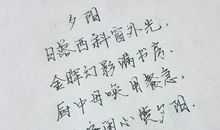 夕阳
日落西斜窗外光,
金晖幻影满书房.
厨中母唤用餐急,
闲小院夕阳.